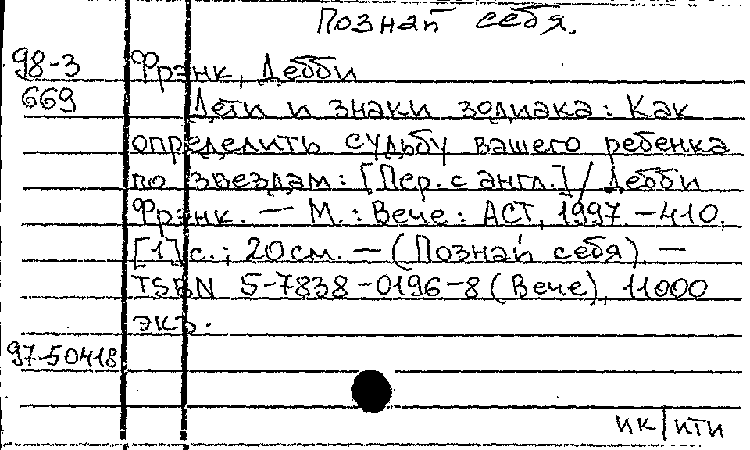 Познай себя.
98-3 Фрэнк, Дебби
669 Дети и знаки зодиака: Как
определить судьбу вашего ребенка
по звездам: [Пер. с англ.] / Дебби
Фрэнк. — М.: Вече: АСТ, 1997. — 410,
[1] с.; 20 см. — (Познай себя) —
ISBN 5-7838-0196-8 (Вече), 11000
экз.
97-50418
ик/ити